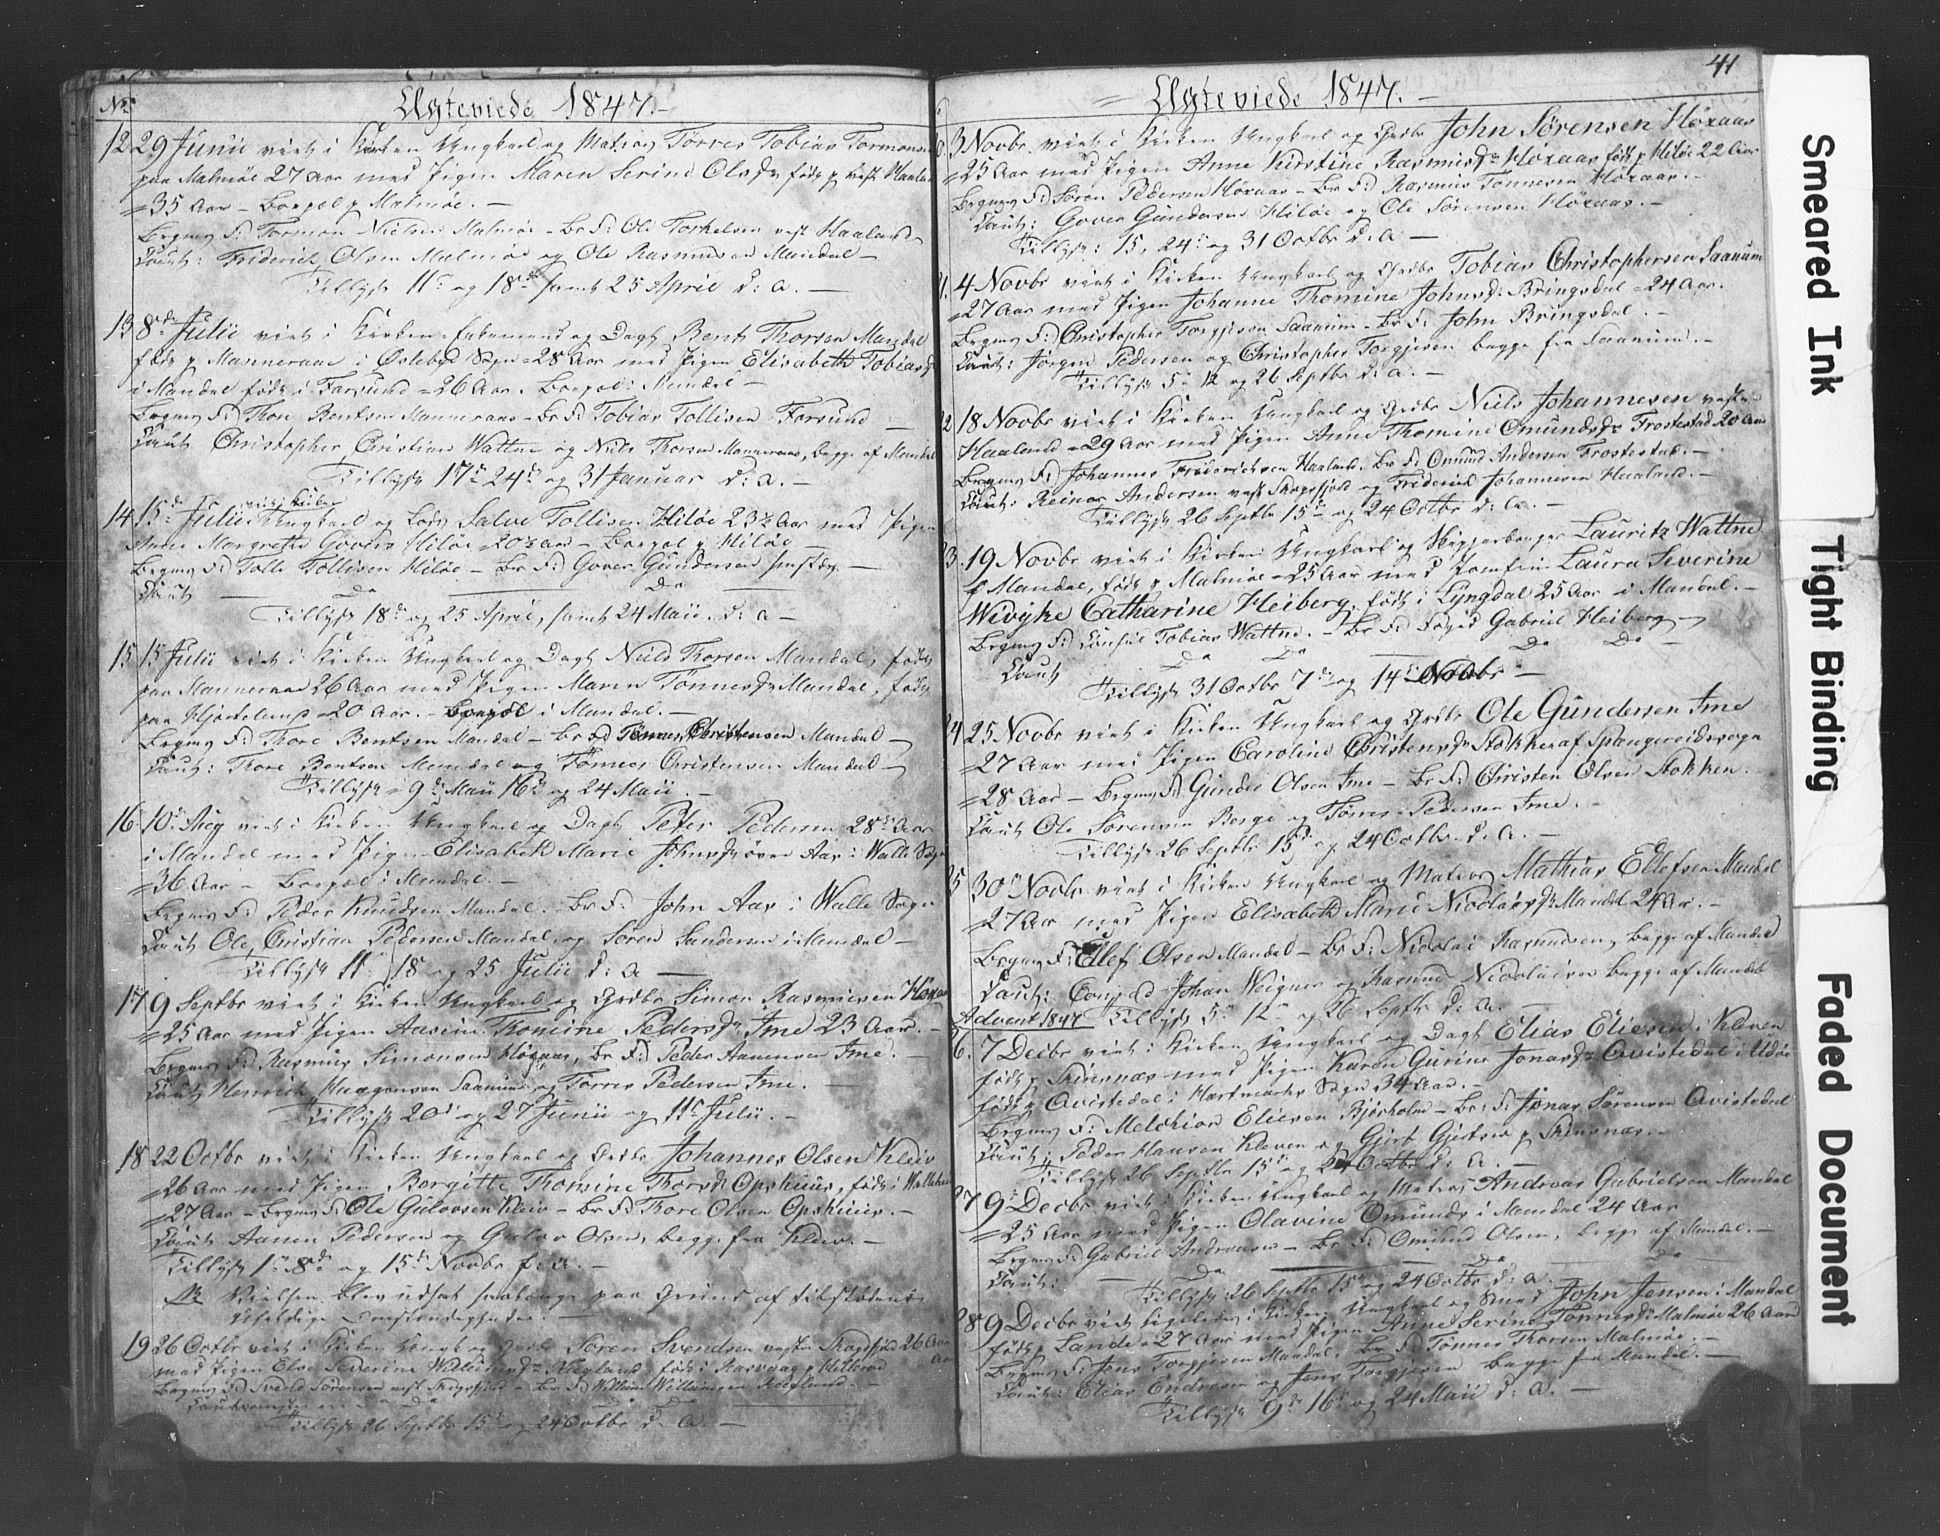 No
Ægteviede 1847.-
12 29 Junii viet i Kirken Ungkarl og Matros Tørres Tobias Tormonsen
paa Malmøe 27 Aar med Pigen Maren Serine Olsdr født p vest Haaland
=35 Aar - Bopæl p Malmøe. -
Brgms F: Tormon Nielsen Malmøe - Br F: Ole Torkelsen vest Haaland
Caut: Friderich Olsen Malmøe og Ole Rasmussen Mandal -
Tillyst 11te og 18de samt 25 April d: A. -
13 8de Julii viet i Kirken Enkemand og Dagl Bent Thorsen Mandal
født p Manneraae i Øslebød Sogn =28 Aar med Pigen Elisabeth Tobiasdr
i Mandal født i Farsund =26 Aar. Bopæl: Mandal -
Brgms F: Thore Bentsen Manneraae - Br F: Tobias Tollisen Farsund -
Caut: Christopher Christian Wattne og Niels Thorsen Manneraae, begge af Mandal
Tillyst 17de 24de og 31 Januar d: A. -
14 15de Julii viet i Kirken Ungkarl og Lods Salve Tollisen Hiløe 23½ Aar med Pigen
Anne Margrethe Govers Hiløe =20½ Aar - Bopæl p Hiløe -
Brgms F: Tolle Tollisen Hiløe - Br F: Gover Gundersen -
Caut Do Do -
Tillyst 18de og 25 April, samt 24 Maii d: A -
15 15 Julii viet i Kirken Ungkarl og Dagl Niels Thorsen Mandal, født
paa Manneraae 26 Aar med Pigen Maren Tønnesdr Mandal, født
paa Hjortelund =20 Aar. - Bopæl i Mandal. -
Brgms F: Thore Bentsen Mandal - Br F: Tønnes Christensen Mandal -
Caut: Thore Bentsen Mandal og Tønnes Christensen Mandal -
Tillyst =9de Maii 16de og 24 Maii. -
16 10de Aug viet i Kirken Ungkarl og Dagl Peter Pedersen 28de Aar
i Mandal med Pigen Elisabeth Marie Johnsdr øvre Aas i Walle Sogn
=36 Aar - Bopæl i Mandal. -
Brgms F: Peder Knudsen Mandal. - Br F: John Aas i Walle Sogn
Caut Ole Christian Pedersen Mandal, og Søren Sandersen i Mandal -
Tillyst 11te 18 og 25 Julii d: A -
17 9 Septbr viet i Kirken Ungkarl og Grdbr Simon Rasmussen Høxaas
=25 Aar med Pigen Aasine Thomine Pedersdr Ime 23 Aar. -
Brgms F: Rasmus Simonsen Høxaas, Br F: Peder Aanensen Ime. -
Caut Henrich Haagensen Saanum og Tørres Pedersen Ime. -
Tillyst 20de og 27 Junii og 11te Julii. -
18 22 Octbr viet i Kirken Ungkarl og Grdbr Johannes Olsen Kleiv
=26 Aar med Pigen Borgitte Thomine Thorsdr Opshuus, født i
=27 Aar - Brgms F: Ole Gulovsen Kleiv - Br F: Thore Olsen Opshuus. -
Caut Aanen Pedersen og Gulov Olsen, begge fra Kleiv. -
Tillyst 1te 8de og 15de Novbr f: A. -
NB Vielsen blev udsat saalænge paa Grund af tilstødende
uheldige Omstændigheder. -
19 26 Octbr viet i Kirken Ungk og Grdbr Søren Svendsen vestre Skogsfjord 26 Aar
med Pigen Else Severine Williumsdr Haaland, født i
Brgms F: Svend Sørensen vest Skogsfjord - Br F: Willum Willumsen Haaland -
Do Do Do Do
Tillyst 26 Septbr 15de og 24 Octbr d: A. -
41
= Ægteviede 1847. -
3 Novbr viet i Kirken Ungkarl og Grdbr John Sørensen Høxaas
=25 Aar med Pigen Anne Kirstine Rasmusdr Høxaas født p Hiløe 22 Aar
Brgms F: Søren Pedersen Høxaas - Br F: Rasmus Tønnesen Høxaas. -
Caut: Gover Gundersen Hiløe og Ole Sørensen Høxaas. -
Tillyst: 15, 24de og 31 Octbr d: A -
4 Novbr viet i Kirken Ungkarl og Grdbr Tobias Christophersen Saanum
=27 Aar med Pigen Johanne Thomine Johnsdr Bringsdal =24 Aar.
Brgms F: Christopher Torgjusen Saanum - Br F: John Bringsdal. -
Caut: Jørgen Pedersen og Christopher Torgjusen begge fra Saanum. -
Tillyst 5te 12 og 26 Septbr d: A. -
2 18 Novbr viet i Kirken Ungkarl og Grdbr Niels Johannesen vestre
Haaland =29 Aar med Pigen Anne Thomine Omundsdr Frostestad 20 Aar
Brgms F: Johannes Friderichsen Haaland. Br F: Omund Andersen Frostestad. -
Caut: Reiner Andersen vest Skogsfjord og Friderich Johannesen Haaland. -
Tillyst 26 Septbr 15de og 24 Octbr d: A. -
3. 19 Novbr viet i Kirken Ungkarl og Skipperborger Lauritz Wattne
p Mandal, født p Malmøe =25 Aar med Jomfru Laura Severine
Wivike Catharine Heiberg, født i Lyngdal 25 Aar i Mandal. -
Brgms F: Consul Tobias Wattne. - Br F: Foged Gabriel Heiberg -
Caut Do Do Do Do -
Tillyst 31 Octbr 7de og 14de Novbr -
24 25 Novbr viet i Kirken Ungkarl og Grdbr Ole Gundersen Ime
=27 Aar med Pigen Caroline Christensdr Stokken af Spangereids Sogn
=28 Aar - Brgms F: Gunder Olsen Ime - Br F: Christen Olsen Stokken. -
Caut Ole Sørensen Berge og Tønnes Pedersen Ime. -
Tillyst 26 Septbr 15de og 24 Octbr d: A. -
25 30te Novbr viet i Kirken Ungkarl og Matros Mathias Ellefsen Mandal
=27 Aar med Pigen Elisabeth Marie Nicolaisdr Mandal 24 Aar. -
Brgms F: Ellef Olsen Mandal - Br F: Nicolai Rasmussen, begge af Mandal
Caut: Conrad Johan Weigner og Rasmus Nicolaisen begge af Mandal
Advent 1847 Tillyst 5te 12te og 26 Septbr d: A. -
6. 7 Decbr viet i Kirken Ungkarl og Dagl Elias Eliesen i Kleven
født p Skinsnæs med Pigen Karen Gurine Jonasdr Qvistedal i Udøe
født p Qvistedal i Hartmarks Sogn 34 Aar. -
Brgms F: Melchior Eliesen Bjørholm - Br: F: Jonas Sørensen Qvistedal
Caut: Peder Hansen Kleven og Gjert Gjertsen p Skinsnæs. -
Tillyst 26 Septbr 15de og 24 Octbr d: A. -
27 9de Decbr viet i Kirken Ungkarl og Matros Andreas Gabrielsen Mandal
=25 Aar med Pigen Olavine Omundsdr i Mandal 24 Aar
Brgms F: Gabriel Andreasen - Br F: Omund Olsen, begge af Mandal. -
Caut: - Do Do Do -
Tillyst 26 Septbr 15de og 24 Octbr d: A.
28 9 Decbr viet ligeledes i Kirken Ungkarl og Smed John Jensen i Mandal
født p Lande =27 Aar med Pigen Anne Serine Tønnesdr Malmøe 26 Aar
Brgms F: Jens Torgjusen Mandal. Br F: Tønnes Thorsen Malmøe. -
Caut: Elias Endresen og Jens Torgjusen begge fra Mandal. -
Tillyst 9de 16de og 24 Maii d: A. -
Smeared Ink
Tight Binding
Faded Document